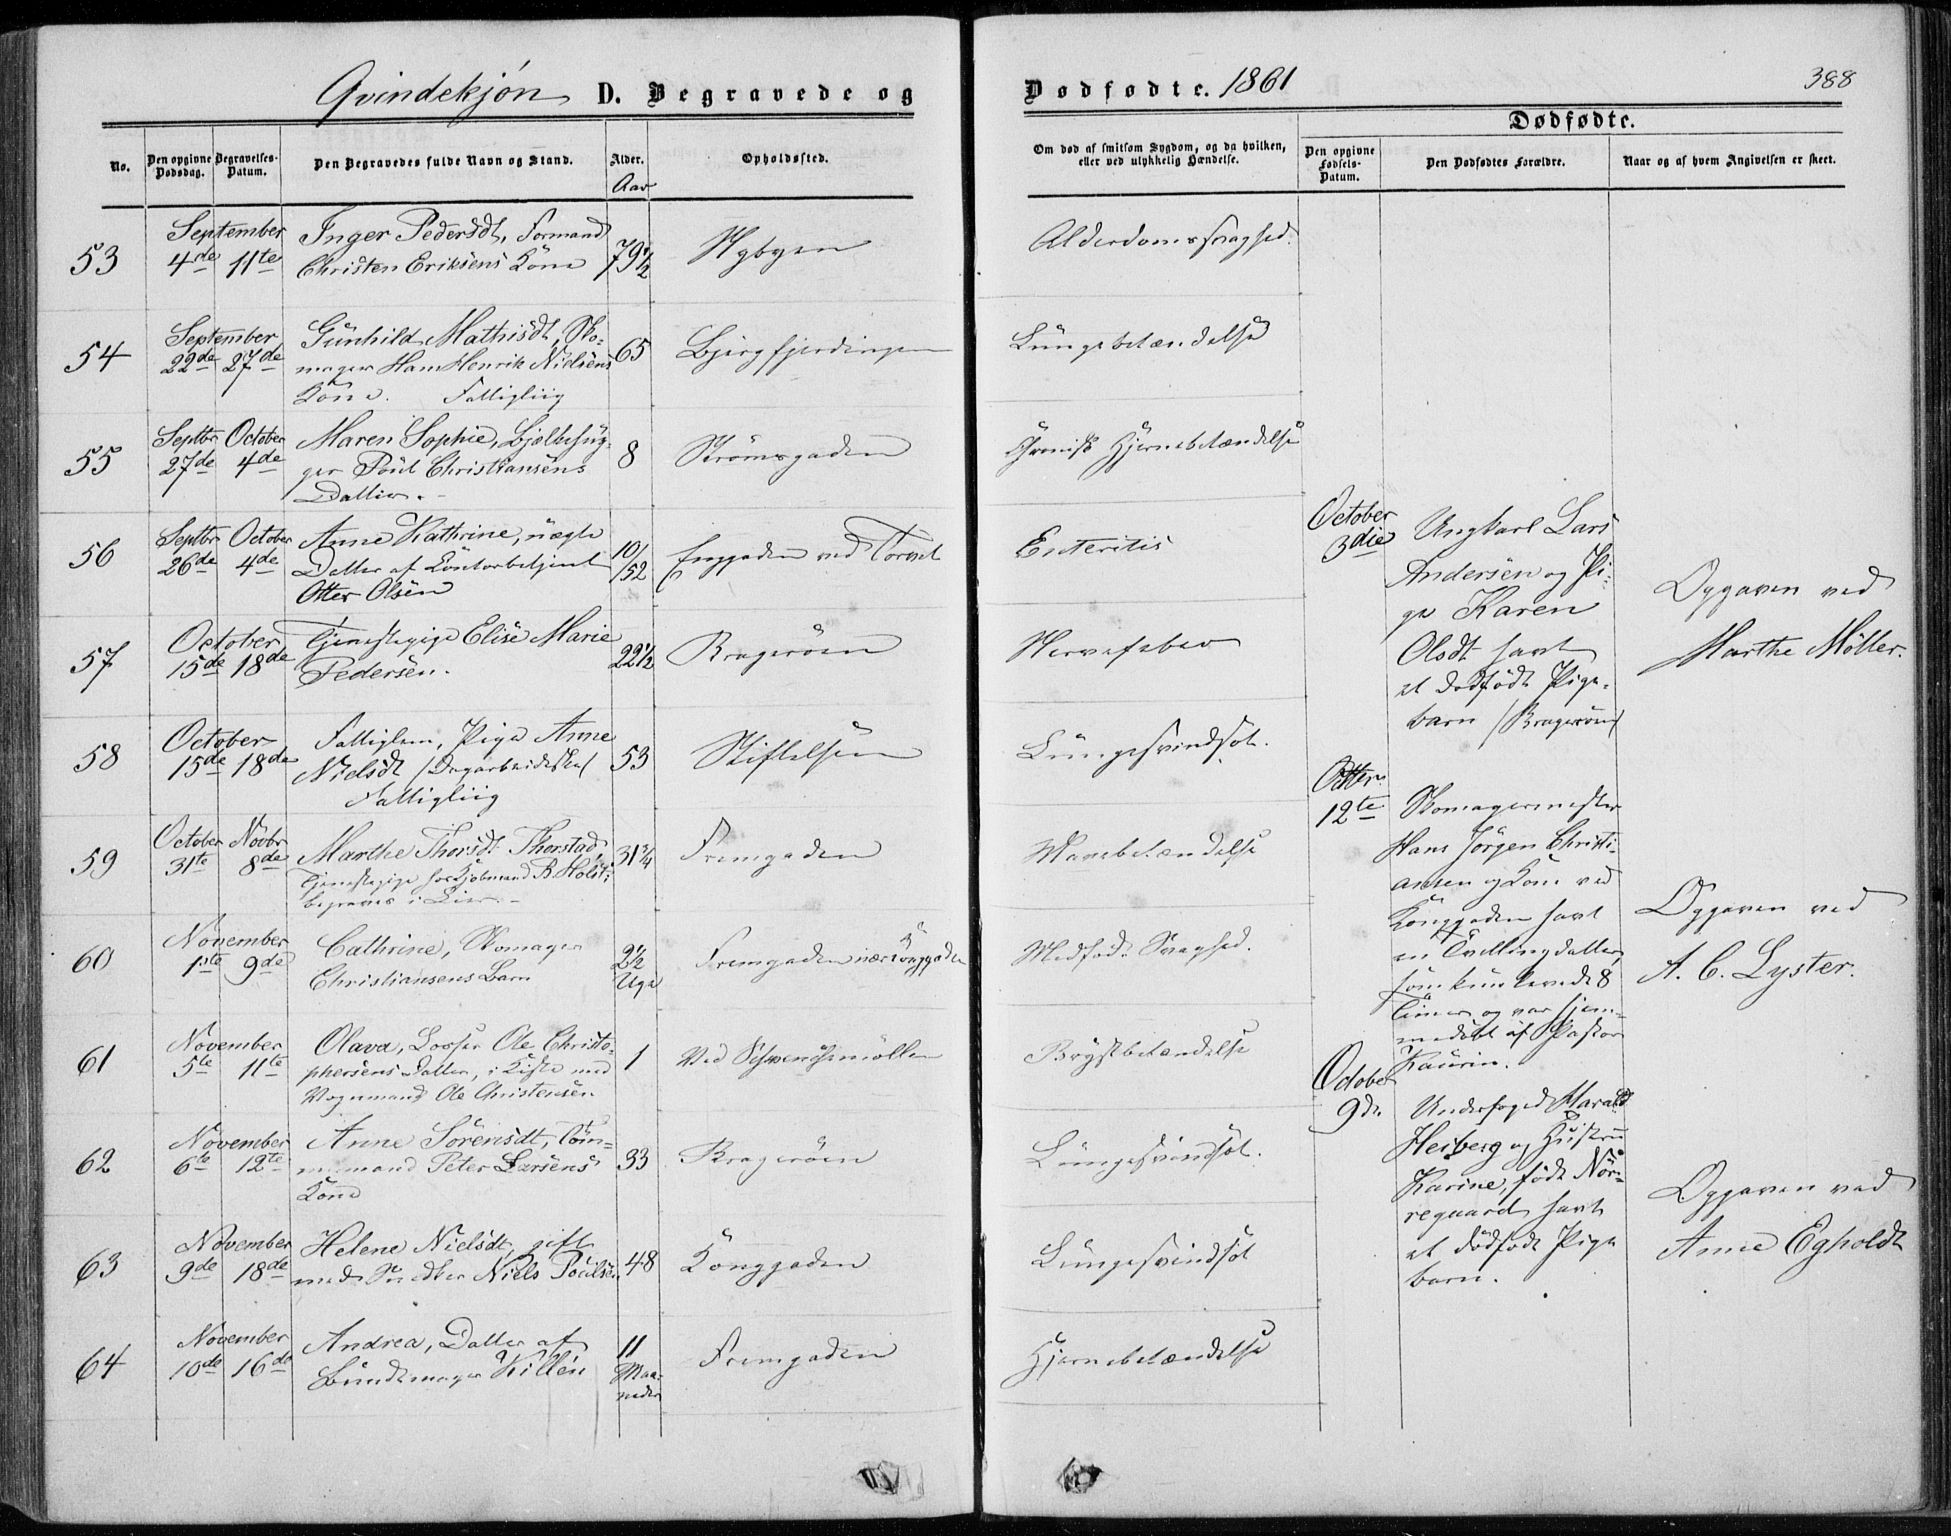 Qvindekjön D. Begravede og
Dødfødte. 1861
388
No.
Den opgivne Dødsdag.
Begravelses-Datum.
Den Begravedes fulde Navn og Stand.
Alder.
Aar
Opholdssted.
Om død af smitsom Sygdom, og da hvilken,
eller ved ulykkelig Hændelse.
Dødfødte.
Den opgivne Fødsels-Datum.
Den Dødfødtes Forældre.
Naar og af hvem Angivelsen er skeet.
53
September
4de 11te
Inger Pedersdt, Formand
Christen Eriksens Kone
79½
Nybyen
Alderdomssvaghed.
54
September
22de 27de
Gunhild Mathisdt, Sko-
mager Hans Henrik Nielsens
Kone. Fattigliig
65
Bjergfjerdingen
Lungebetændelse
55
Septbr October
27de 4de
Maren Sophie, Bjelkehug-
ger Poul Christiansens
Datter.
8
Strömsgaden
Chronisk Hjernebetændelse
56
Septbr October
26de 4de
Anne Kathrine, uægte
Datter af Contorbetjent
Otter Olsen
10/52
Enggaden ved Torvet
Enteritis
57
October
15de 18de
Tjenestepige Elise Marie
Pedersen.
22½
Brageröen
Nervefeber
58
October
15de 18de
Fattiglem, Pige Anne
Nielsdt /Dagarbeiderske/
Fattigliig
53
Stiftelsen
Lungesvindsot.
59
October Novbr
31te 8de
Marthe Thorsdt Thorstad
Tjenestepige hos Kjöbmand B. Holst;
begraves i Lier.
31¼
Fremgaden
Mavebetændelse
60
November
1ste 9de
Cathrine, Skomager
Christiansens Barn
2½
Uge
Fremgaden nær Konggaden
Medfødt Svaghed.
61
November
5te 11te
Olava, Losser Ole Christo-
phersens Datter, i Kiste med
Vognmand Ole Christensen
1
Ved Schwenchemöllen
Brystbetændelse
62
November
6te 12te
Anne Sörensdt, Töm-
mermand Peter Larsens
Kone
33
Brageröen
Lungesvindsot.
63
November
9de 18de
Helene Nielsdt, gift
med Snedker Niels Poulsen
48
Konggaden
Lungesvindsot
64
November
10de 16de
Andrea, Datter af
Bundtmager Killén
11
Maa-
neder
Fremgaden
Hjernebetændelse
October
3die
Ungkarl Lars
Andersen og Pi-
ge Karen
Olsdt havt
et dødfödt Pige-
barn /Brageröen/
Opgaven ved
Marthe Möller.
12te
Skomagermester
Hans Jörgen Christi-
ansen og Kone ved
Konggaden havt
en Tvillingdatter,
som kun levede 8
Timer og var hjem-
medöbt af Pastor
Kaurin.
Opgaven ved
A. C. Lyster.
October
9de
Underfoged Harald
Heiberg og Hustru
Karine, födt Nör-
regaard havt
et dödfödt Pige
barn.
Opgaven ved
Anne Egholdt